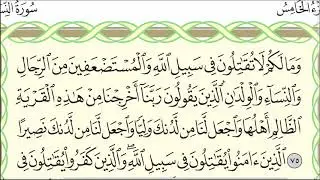 سُورَةُ النِّسَ
زْءُ الْخَامِسُ
وَمَا لَكُمْ لَا تُقَاتِلُونَ فِي سَبِيلِ اللَّهِ وَالْمُسْتَضْعَفِينَ مِنَ الرِّجَالِ
وَالنِّسَاءِ وَالْوِلْدَانِ الَّذِينَ يَقُولُونَ رَبَّنَا أَخْرِجْنَا مِنْ هَٰذِهِ الْقَرْيَةِ
الظَّالِمِ أَهْلُهَا وَاجْعَل لَّنَا مِن لَّدُنكَ وَلِيًّا وَاجْعَل لَّنَا مِن لَّدُنكَ نَصِيرًا
٧٥ الَّذِينَ ءَامَنُوا يُقَاتِلُونَ فِي سَبِيلِ اللَّهِ ۖ وَالَّذِينَ كَفَرُوا يُقَاتِلُونَ فِي